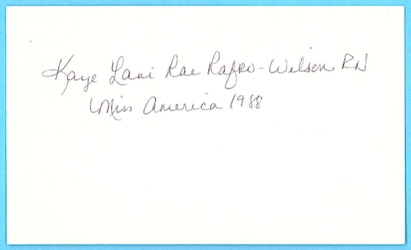 Kaye Lani Rae Rafko-Wilson RN
Miss America 1988